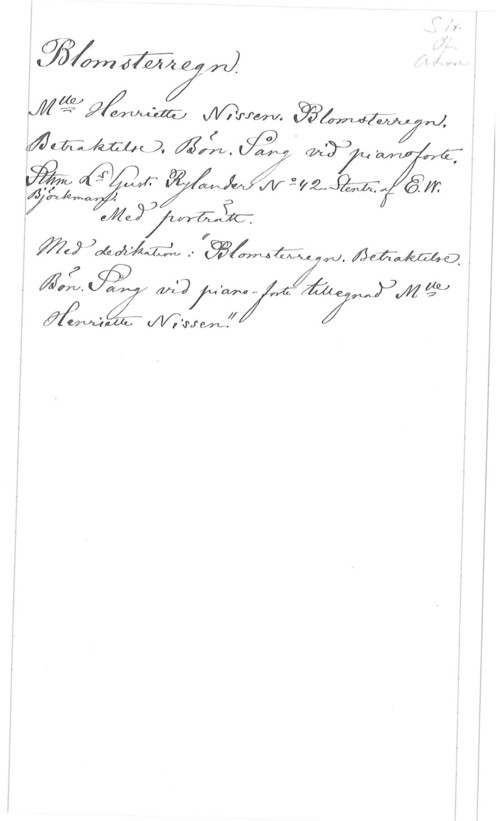 Blomsterregn.
Mlle Henriette Nissen. Blomsterregn.
Betraktelse. Bön. Sång vid pianoforte.
Sthm Ls Gust. Rylander No 42 Stentr. af E. W.
Björkman.
Med porträtt.
Med dedikation: "Blomsterregn. Betraktelse.
Bön. Sång vid piano-forte tillegnad Mlle
Henriette Nissen."